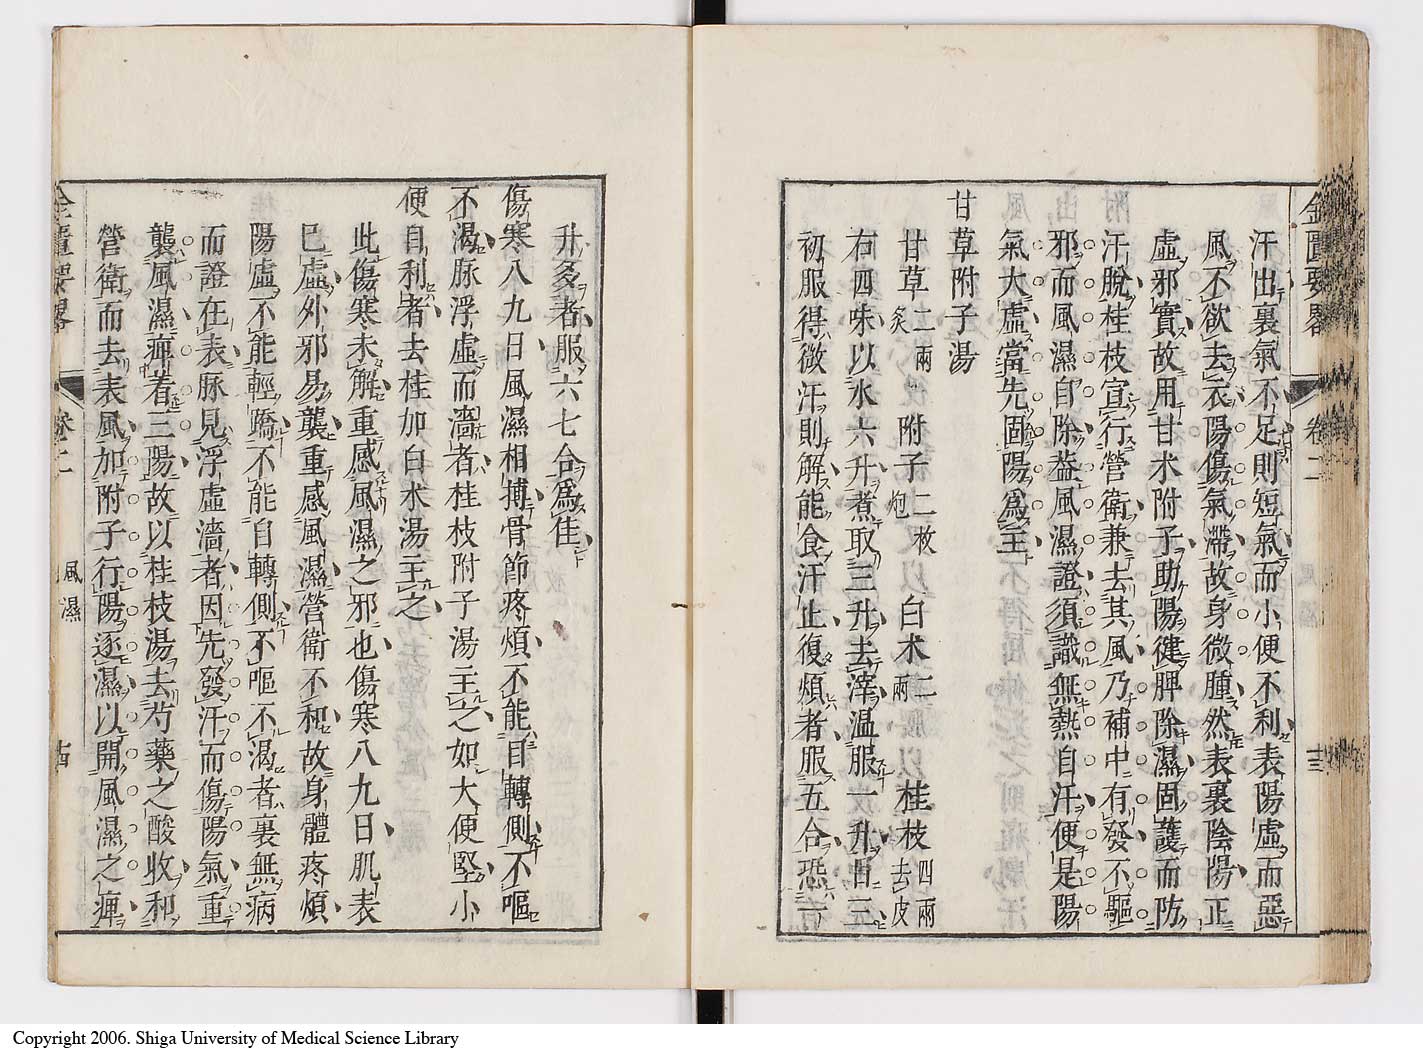 金匱要畧 卷二 十三
汗出裏氣不足則短氣而小便不利表陽虛而惡
風不欲去衣陽傷氣滯故身微腫然表裏陰陽正
虛邪實故用甘朮附子助陽健脾除濕固護而防
汗脫桂枝宣行營衛兼去其風乃補中有發不驅
邪而風濕自除葢風濕證須識無熱自汗便是陽
氣大虛當先固陽爲主
甘草附子湯
甘草二兩炙 附子二枚炮 白朮二兩 桂枝四兩去皮
右四味以水六升煮取三升去滓温服一升日三
初服得微汗則解能食汗止復煩者服五合恐一
升多者服六七合爲佳
傷寒八九日風濕相摶骨節疼煩不能自轉側不嘔
不渴脉浮虛而濇者桂枝附子湯主之如大便堅小
便自利者去桂加白朮湯主之
此傷寒未解重感風濕之邪也傷寒八九日肌表
已虛外邪易襲重感風濕營衛不和故身體疼煩
陽虛不能輕蹻不能自轉側不嘔不渴者裏無病
而證在表脉見浮虛濇者因先發汗而傷陽氣重
襲風濕痺着三陽故以桂枝湯去芍藥之酸收和
營衛而去表風加附子行陽逐濕以開風濕之痺
金匱要畧 卷二 風濕 十四
Copyright 2006. Shiga University of Medical Science Library